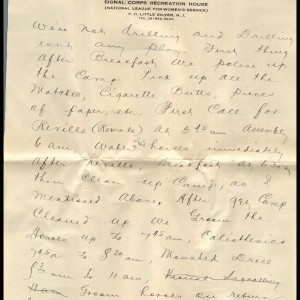 SIGNAL CORPS RECREATION HOUSE
(NATIONAL LEAGUE FOR WOMEN'S SERVICE)
P. O. LITTLE SILVER, N. J.
Were not drilling and Drilling
isnt any play. First thing
After Breakfast we police up
the Camp. Pick up all the
Matches, Cigarette Butts, pieces
of paper, etc. First Call for
Reveille at 5 am. Assembly
6 am. Water horses immediately
After Reveille. Breakfast at
then Clean up Camp, as I
Mentioned Above. After Camp
Cleaned up We Groom the
Horses up to 7 45 am, Calisthenics
7 45 a to 8 30 am, Mounted Drill
8 30 am to 11 am,
Groom horses on return